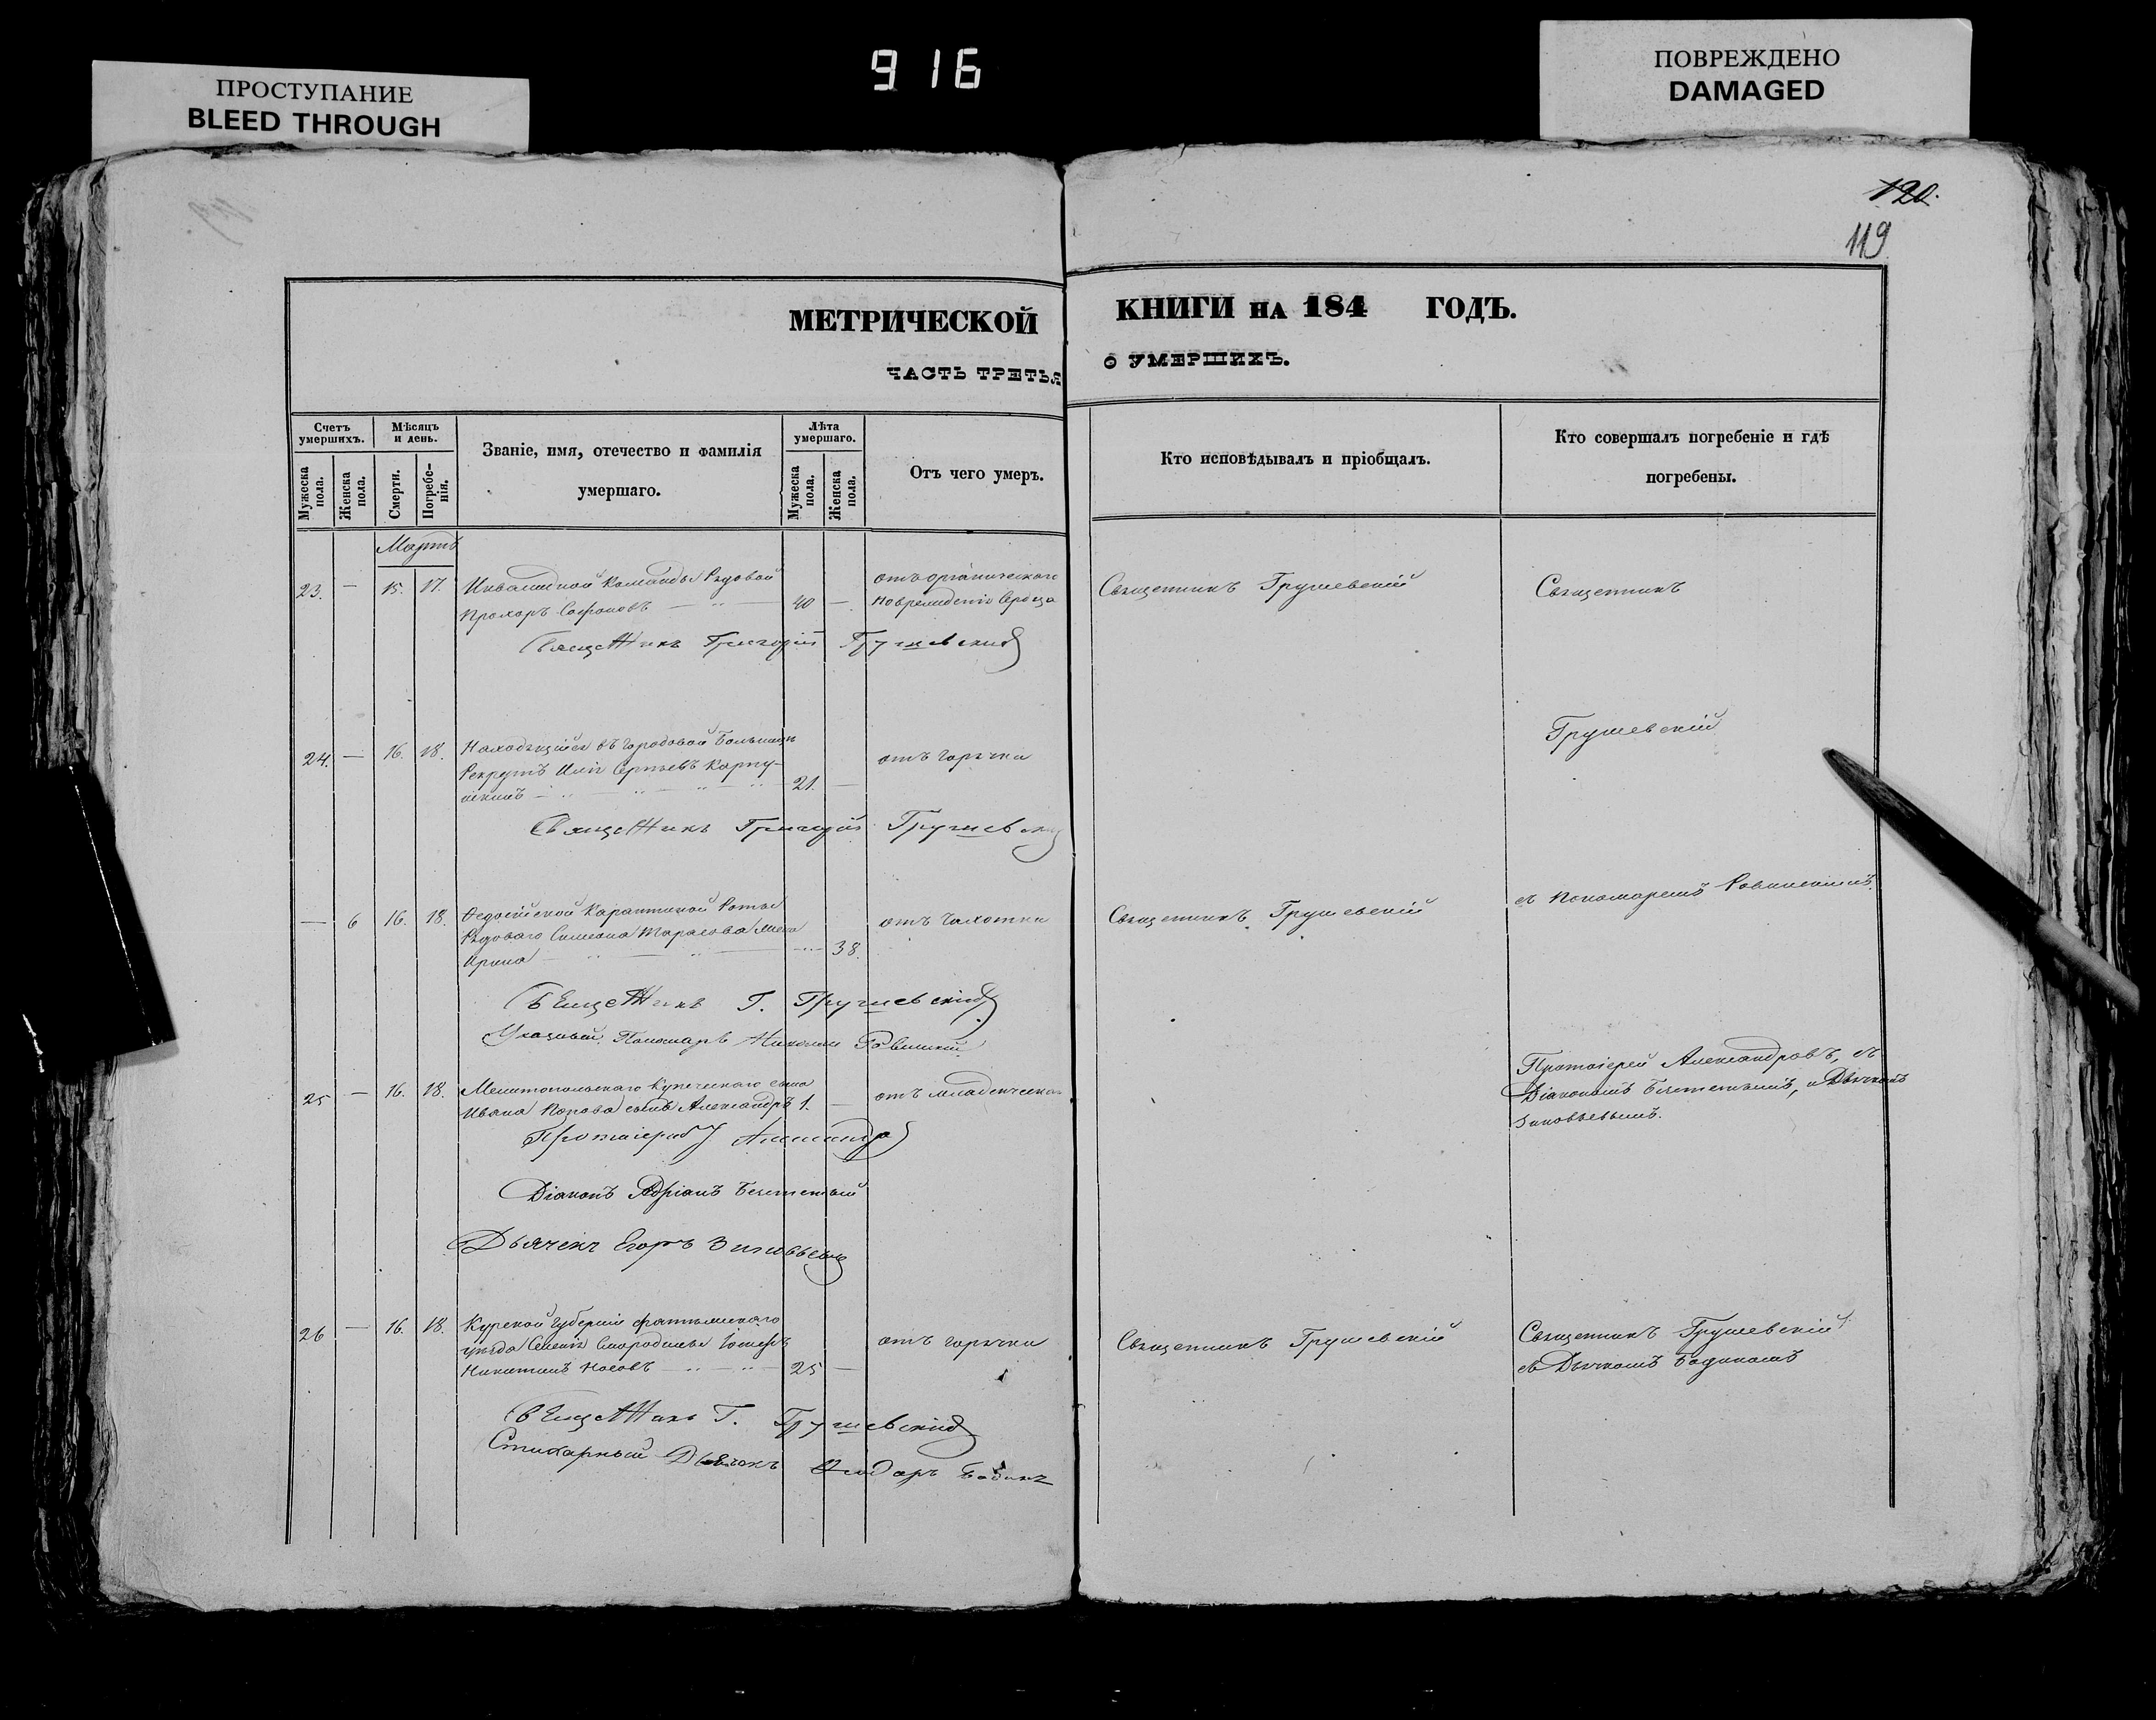 ПРОСТУПАНИЕ
BLEED THROUGH
916
ПОВРЕЖДЕНО
DAMAGED
120.
119
МЕТРИЧЕСКОЙ КНИГИ НА 184 ГОДЪ.
ЧАСТЬ ТРЕТЬЯ О УМЕРШИХЪ.
Счетъ умершихъ.
Мужеска пола.
Женска пола.
Мѣсяцъ и день.
Смерти.
Погребе-нія.
Званіе, имя, отечество и фамилія
умершаго.
Лѣта умершаго.
Мужеска пола.
Женска пола.
Отъ чего умеръ.
Кто исповѣдывалъ и пріобщалъ.
Кто совершалъ погребеніе и гдѣ
погребены.
Мартъ
23. — 15. 17. Инвалидной Команды Рядовой отъ органическаго Священникъ Грушевскій Священникъ
Прохоръ Сафоновъ — 40 — поврежденія Сердца
Священникъ Григорій Грушевскій
Грушевскій
24. — 16. 18. Находящійся въ городовой Больницѣ отъ горячки
Рекрутъ Сергѣевъ
21. —
Священникъ Григорій Грушевскій
съ Пономаремъ
— 6 16. 18. Феодосійской Карантинной Роты отъ чахотки Священникъ Грушевскій
Рядоваго Симеона Тарасова жена
Ирина — 38.
Священникъ Г. Грушевскій
Указный Пономарь Николай
Протоіерей Александровъ, съ
25 — 16. 18. Мелитопольскаго Купеческаго сына отъ младенческой Діакономъ и Дьячкомъ
Ивана Попова сынъ Александръ 1. — Зиновьевымъ.
Протоіерей
Діаконъ Адріанъ
Дьячекъ Егоръ Зиновьевъ
26 — 16. 18. Курской Губерніи Фатежскаго отъ горячки Священникъ Грушевскій Священникъ Грушевскій
уѣзда Селенія
Никитинъ Носовъ — 25 — съ Дьячкомъ
Священникъ Г. Грушевскій
Стихарный Дьячекъ